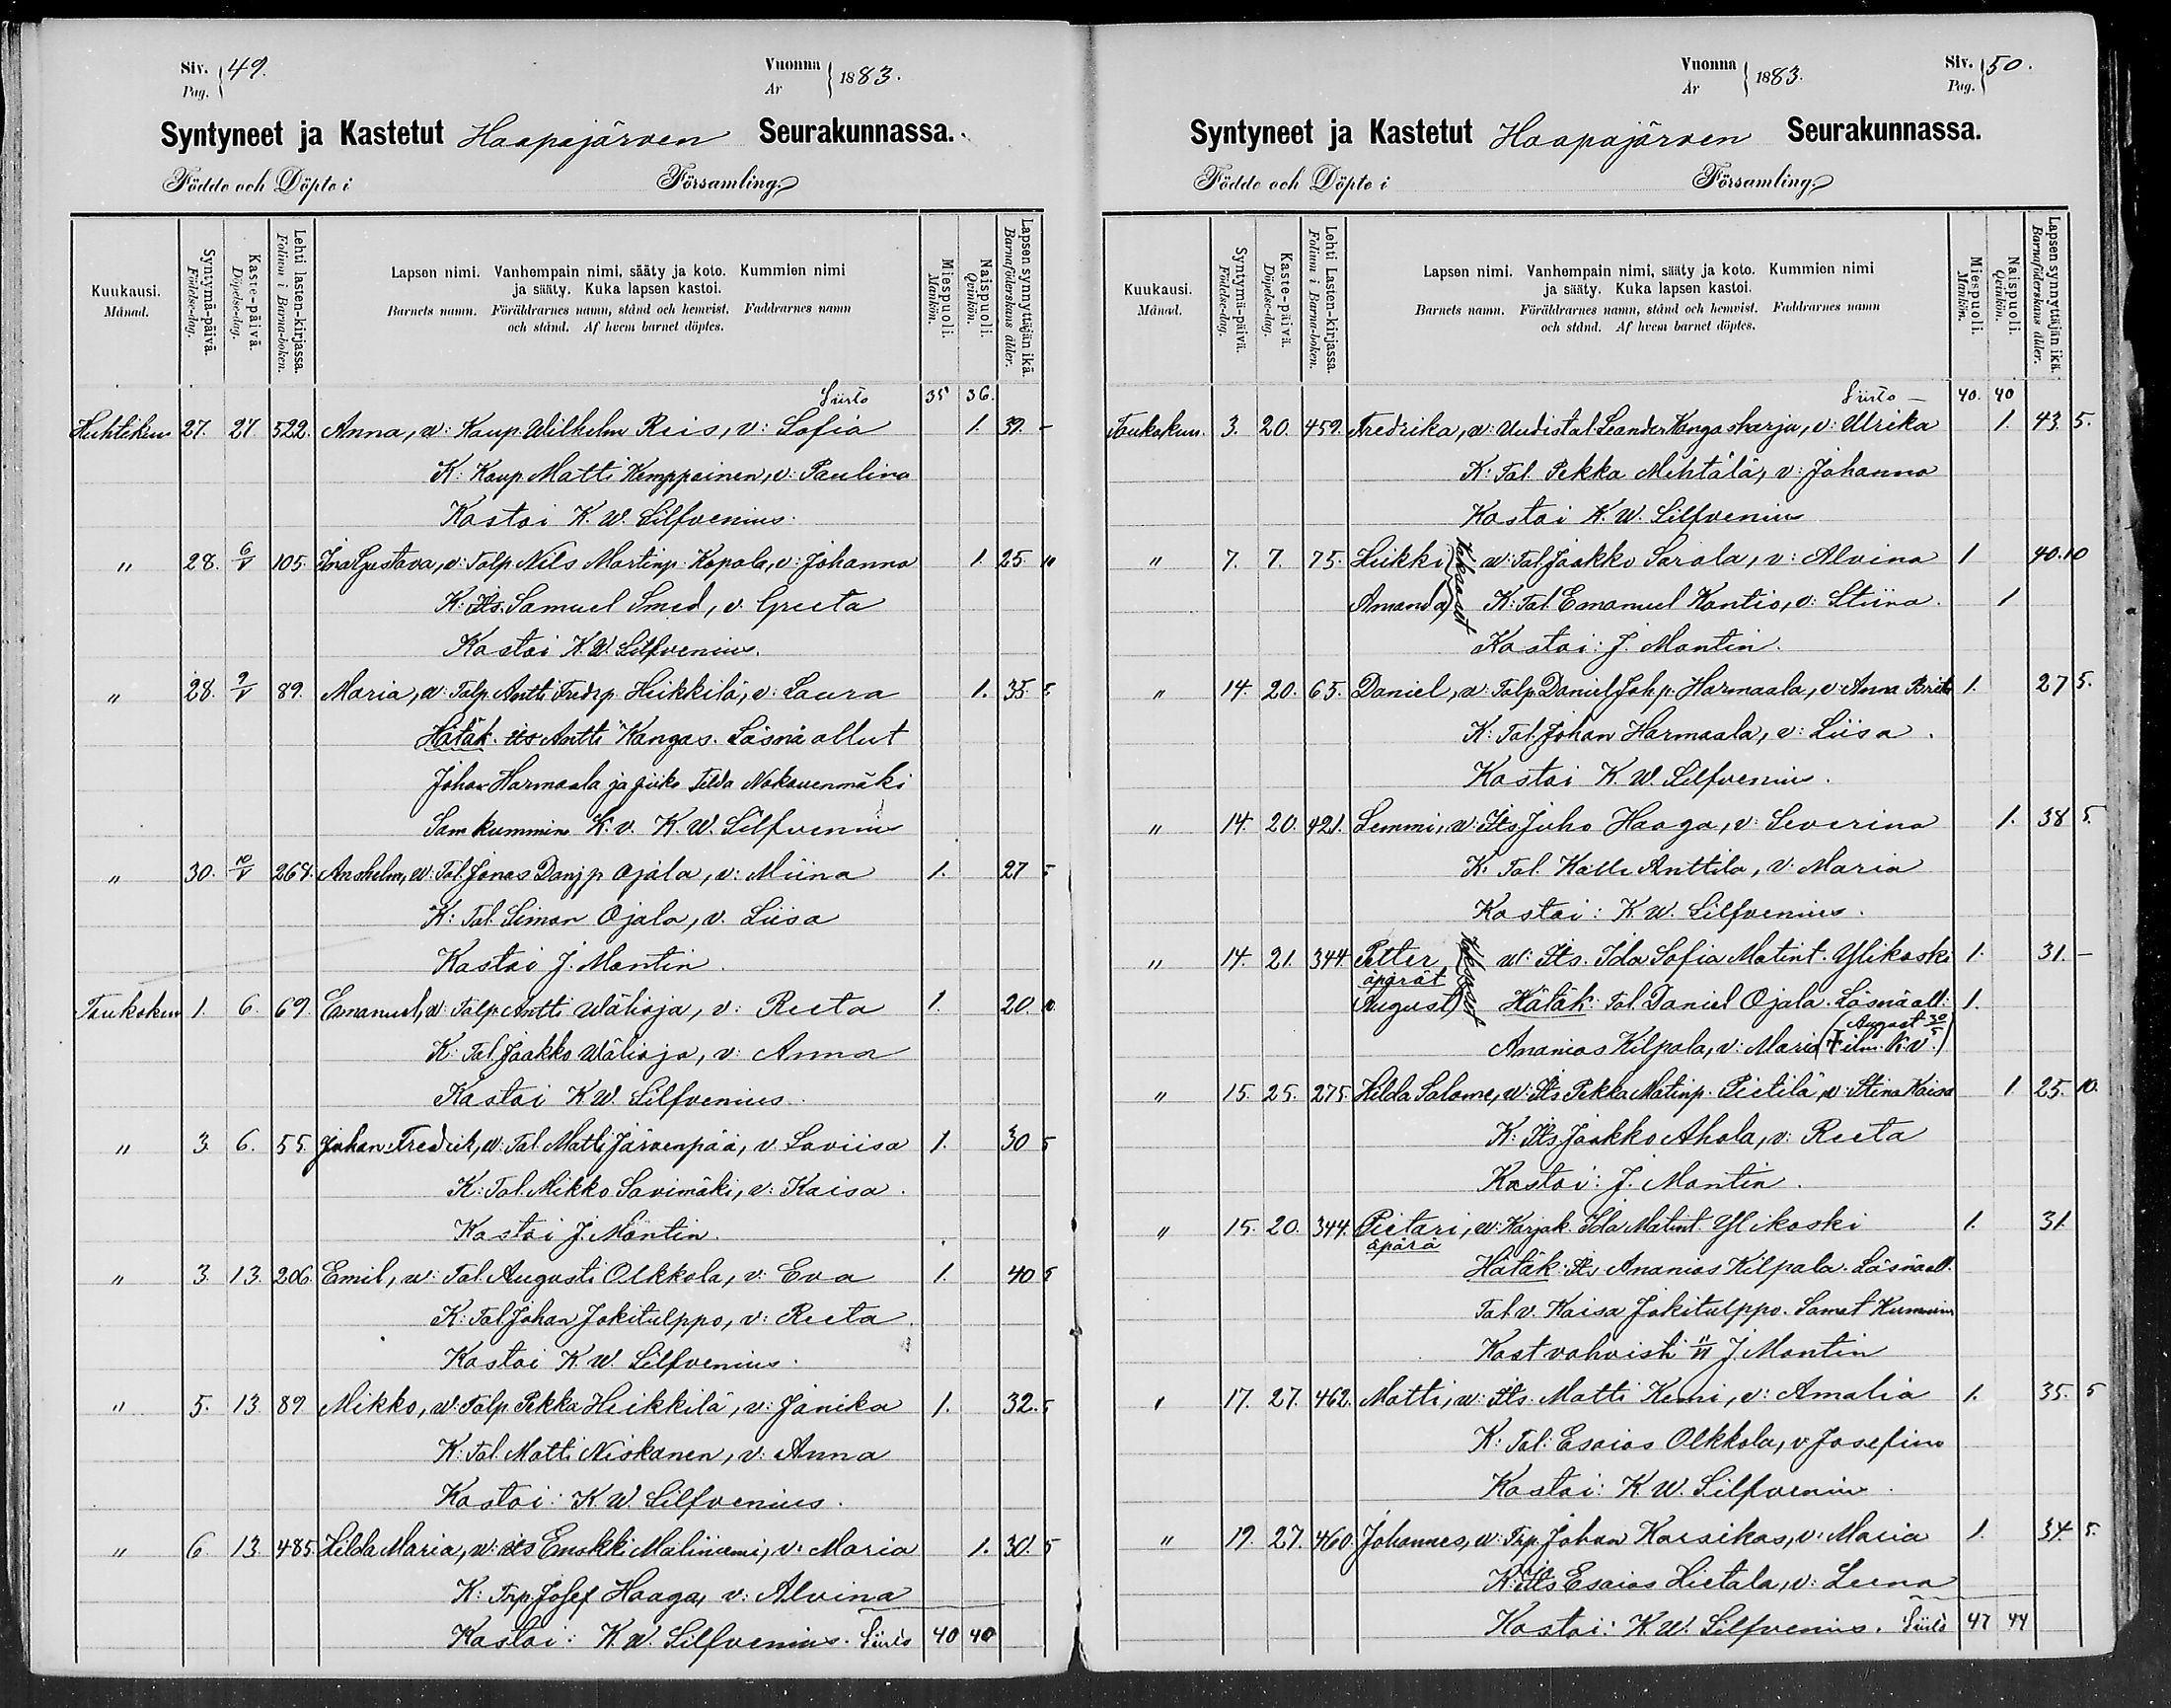 Siv. 49.
Pag.
Vuonna 1883.
År
Syntyneet ja Kastetut Haapajärven Seurakunnassa.
Födde och Döpte i Församling.
Kuukausi.
Månad.
Syntymä-päivä.
Födelse-dag.
Kaste-päivä.
Döpelse-dag.
Lehti lasten-kirjassa.
Folium i Barna-boken.
Lapsen nimi. Vanhempain nimi, sääty ja koto. Kummien nimi
ja sääty. Kuka lapsen kastoi.
Barnets namn. Föräldrarnes namn, stånd och hemvist. Faddrarnes namn
och stånd. Af hvem barnet döptes.
Miespuoli.
Mankön.
Naispuoli.
Qvinkön.
Lapsen synnyttäjän ikä.
Barnaföderskans ålder.
Siirto 35 36.
Huhtikuu 27. 27. 522. Anna, w: Kaup. Wilhelm Reis, v: Sofia 1. 39. –
K: Kaup. Matti Kemppainen, v: Paulina
Kastoi K. W. Silfvenius.
" 28. 6/V 105. Ina Gustava, v: Talp. Nils Martinp. Kopola, v: Johanna 1. 25. "
K: Its. Samuel Smed, v: Greeta
Kastoi K. W. Silfvenius.
" 28. 9/V 89. Maria, w: Talp. Antti Fredrp. Heikkilä, v: Laura 1. 35. 5
Hätäk. its Antti Kangas. Läsnä ollut
Johan Harmaala ja piika Tilda Nokouenmäki
Sam kummin. K. v. K. W. Silfvenius
" 30. 10/V 268. Anshelm, w: Tal. Jonas Danjp. Ojala, v: Miina 1. 27 5
K: Tal. Simon Ojala, v. Liisa
Kastoi J. Montin.
Toukokuu 1. 6. 69. Emanuel, w: Talp. Antti Wälioja, v: Reeta 1. 20. 10
K: Tal. Jaakko Wälioja, v: Anna
Kastoi K W. Silfvenius.
" 3. 6. 55. Johan Fredrik, w: Tal. Matti Järvenpää, v. Loviisa 1. 30 5
K: Tal. Mikko Savimäki, v: Kaisa.
Kastoi J. Montin.
" 3. 13. 206. Emil, w: Tal. Augusti Olkkola, v: Eva 1. 40 5
K: Tal Johan Jokitulppo, v: Reeta.
Kastoi K. W. Silfvenius.
" 5. 13. 89 Mikko, w: Talp. Pekka Heikkilä, v: Janika 1. 32. 5
K: Tal. Matti Niskanen, v: Anna
Kastoi: K W. Silfvenius.
" 6. 13. 485. Hilda Maria, w: its Enokki Maliniemi, v: Maria 1. 30. 5
K: Trp. Josef Haaga, v: Alvina
Kastoi: K. W. Silfvenius. Siirto 40 40
Vuonna 1883.
År
Siv. 50.
Pag.
Syntyneet ja Kastetut Haapajärven Seurakunnassa.
Födde och Döpte i Församling.
Kuukausi.
Månad.
Syntymä-päivä.
Födelse-dag.
Kaste-päivä.
Döpelse-dag.
Lehti Lasten-kirjassa.
Folium i Barna-boken.
Lapsen nimi. Vanhempain nimi, sääty ja koto. Kummien nimi
ja sääty. Kuka lapsen kastoi.
Barnets namn. Föräldrarnes namn, stånd och hemvist. Faddrarnes namn
och stånd. Af hvem barnet döptes.
Miespuoli.
Mankön.
Naispuoli.
Qvinkön.
Lapsen synnyttäjän ikä.
Barnaföderskans ålder.
Siirto – 40. 40
Toukokuu. 3. 20. 459. Fredrika, w: Uudistal Leander Kangasharju, v: Ulrika 1. 43. 5.
K: Tal. Pekka Mehtälä, v: Johanna
Kastoi K. W. Silfvenius
" 7. 7. 75. Heikki w: Tal Jaakko Sarola, v: Alvina 1 40. 10
Amanda kaksoset K: Tal. Emanuel Kontio, v: Stiina. 1
Kastoi: J. Montin.
" 14. 20. 65. Daniel, w: Talp. Daniel Johp. Harmaala, v: Anna Brita 1. 27 5.
K: Tal. Johan Harmaala, v: Liisa.
Kastoi K. W. Silfvenius.
" 14. 20. 421. Lemmi, w: Its Juho Haaga, v: Severina 1. 38 5.
K. Tal. Kalle Anttila, v: Maria
Kastoi: K. W. Silfvenius.
" 14. 21. 344 Petter kaksoset w: Its. Ida Sofia Matint. Ylikoski 1. 31. –
äpärät
August Hätäk: Tal. Daniel Ojala. Läsnä oll: 1.
Ananias Kilpala, v: Maria (August 30/5 † ilm. K.v.)
" 15. 25. 275. Hilda Salome, w: Its Pekka Matinp. Pietilä, v: Stina Kaisa 1 25. 10.
K: Its Jaakko Ahola, v: Reeta
Kastoi: J. Montin.
" 15. 20. 344. Pietari, w: Karjak. Ida Matint. Ylikoski 1. 31.
äpärä
Hätäk: Its Ananias Kilpala. Läsnä oll.
Tal. v. Kaisa Jokitulppo. Samat Kummin
Kast vahvisti 11/VI J. Montin
" 17. 27. 462. Matti, w: Its. Matti Kemi, v: Amalia 1. 35. 5
K: Tal: Esaias Olkkola, v: Josefina
Kastoi: K. W. Silfvenius.
" 19. 27. 460. Johannes, w: Trp Johan Karsikas, v: Maria 1. 34. 5.
K: Its Esaias Hietala, v: Leena
Kastoi: K. W. Silfvenius. Siirto 47 44